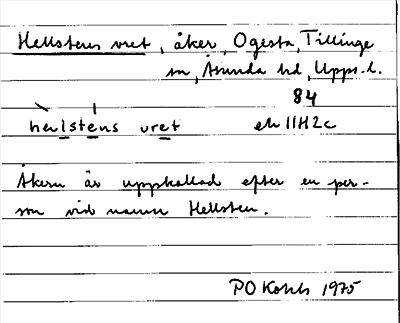 Hellstens vret, åker, Ogesta, Tillinge
sn, Åsunda hd, Upps. l.
84
helstens vret ek 11H2c
Åkern är uppkallad efter en per-
son vid namn Hellsten.
PO Kohls 1975